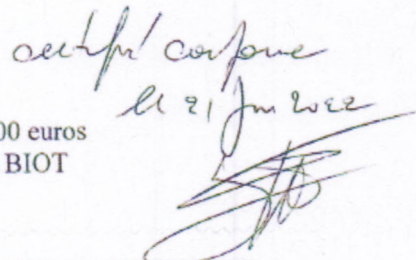 certifié conforme
le 21 Juin 2022
00 euros
BIOT